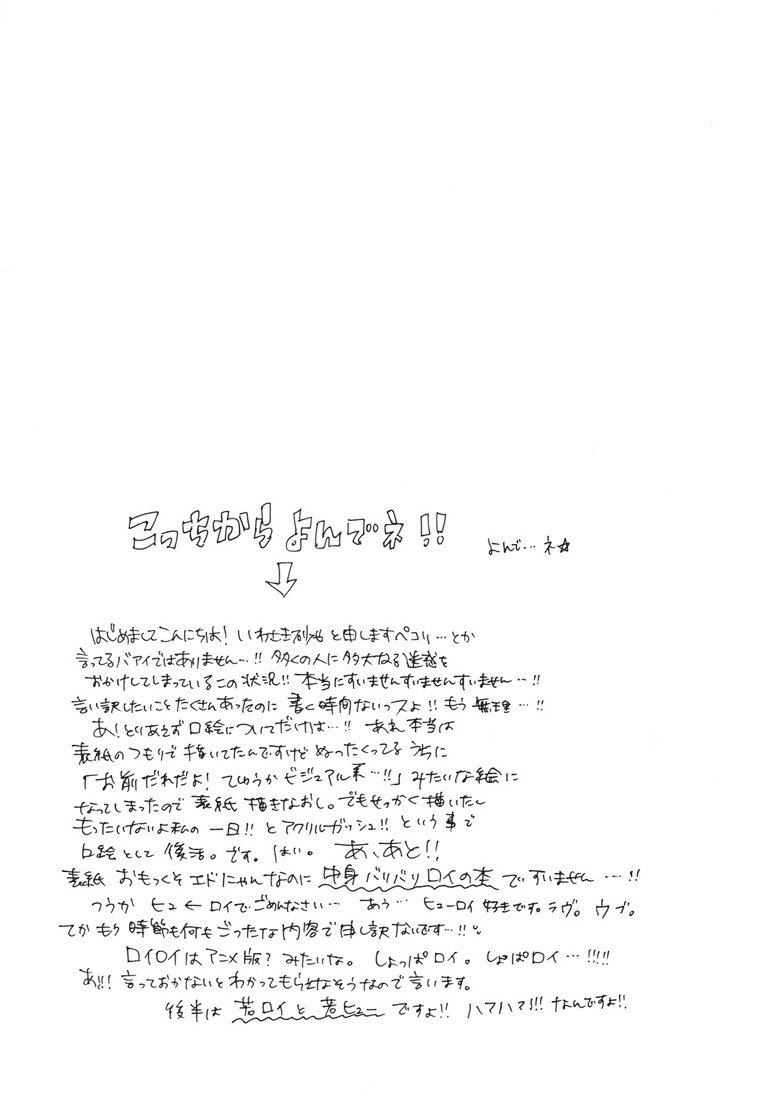 こっちからよんでネ!!
よんで…ネ☆
↓
はじめましてこんにちは! いわさき と申しますペコリ…とか
言ってるバアイではありません…!! 多くの人に多大なる迷惑を
おかけしてしまっているこの状況!! 本当にすいませんすいませんすいません…!!
言い訳したいことたくさんあったのに 書く時間ないっスよ!! もう 無理…!!
あ!とりあえず口絵についてだけは…!! あれ本当は
表紙のつもりで描いてたんですけどぬったくってるうちに
「お前だれだよ! てゆうかビジュアル系…!!」みたいな絵に
なってしまったので 表紙 描きなおし。でもせっかく描いたし
もったいないよ私の一日!! とアクリルガッシュ!! という事で
口絵として 復活。です。はい。 あ、あと!!
表紙 おもっくそ エドにゃんなのに 中身バリバリロイの本 ですいません…!!
つうか ヒュ←ロイでごめんなさい… あう… ヒューロイ 好きです。ラヴ。ウブ。
てか もう 時節も何もごったな内容で申し訳ないです…!!
ロイロイはアニメ版? みたいな。 しょっぱロイ。しょぱロイ…!!!!
あ!!! 言っておかないとわかってもらえなそうなので言います。
後半は 若ロイと若ヒュー ですよ!! ハアハア!!! なんですよ!!